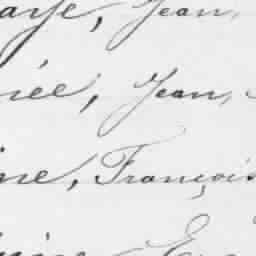 aye, Jean,
née, Jean,
ine, François